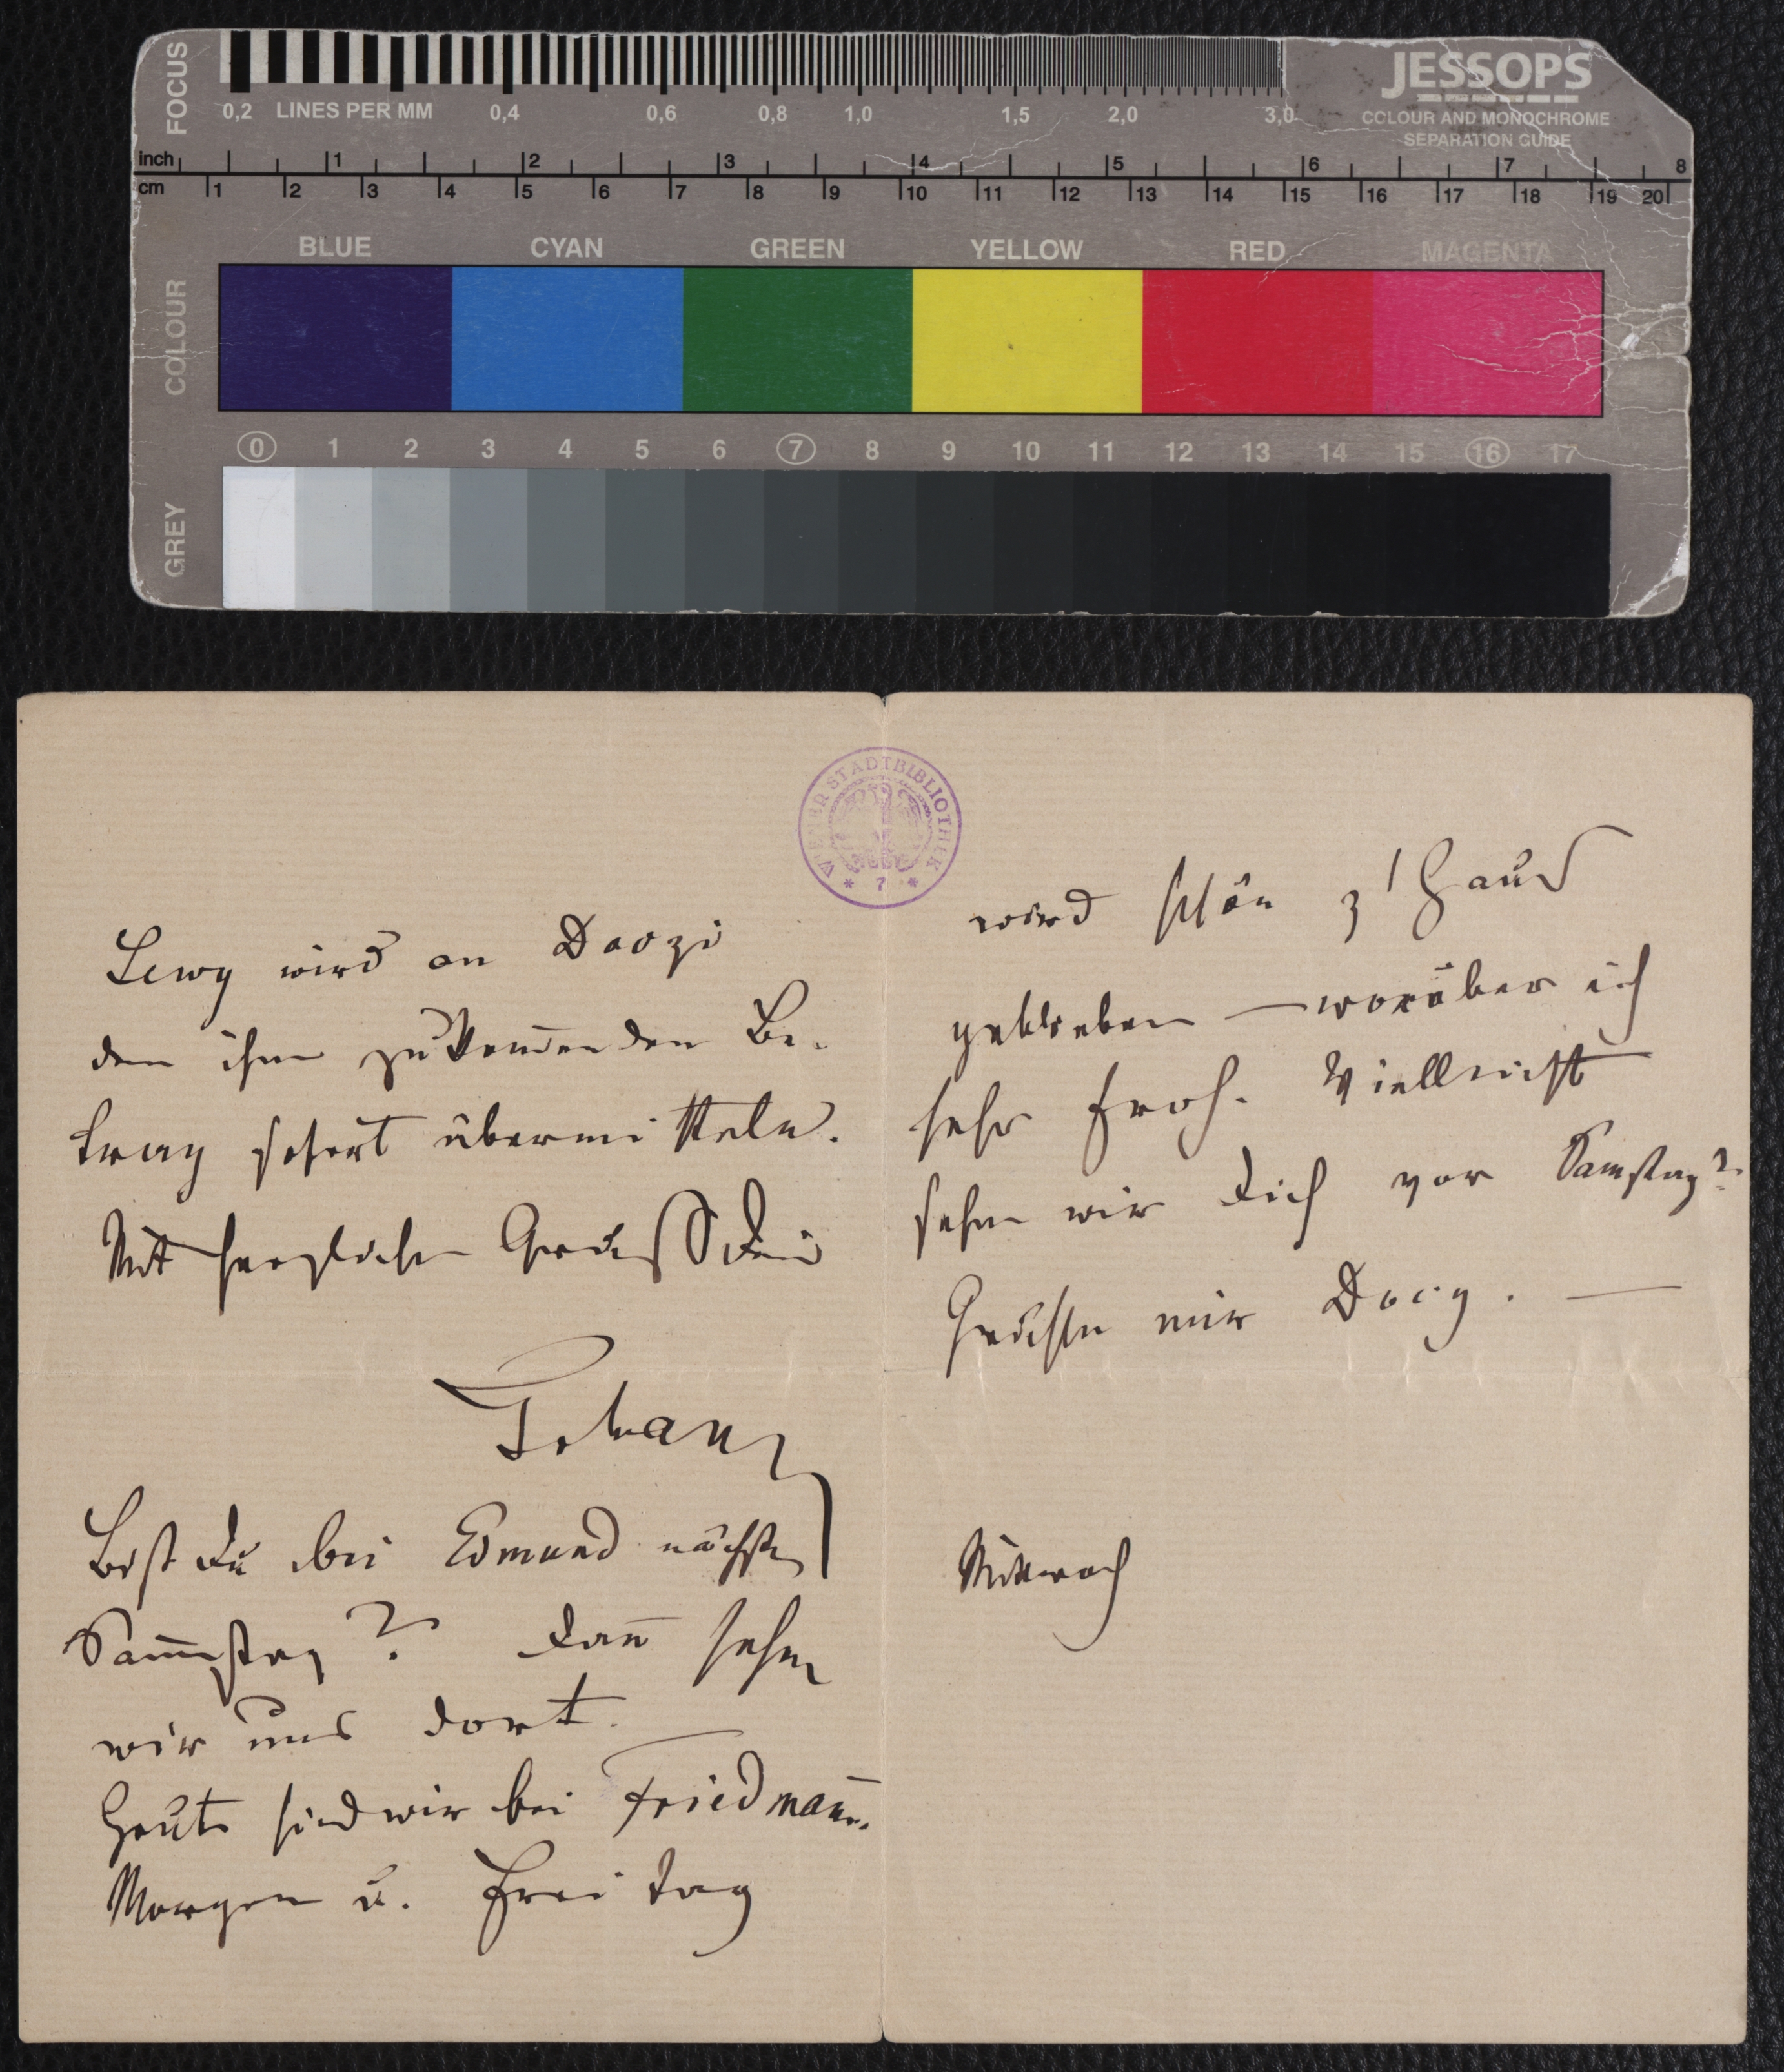 FOCUS
0,2 LINES PER MM 0,4 0,6 0,8 1,0 1,5 2,0 3,0
JESSOPS
COLOUR AND MONOCHROME
SEPARATION GUIDE
inch 1 2 3 4 5 6 7 8
cm 1 2 3 4 5 6 7 8 9 10 11 12 13 14 15 16 17 18 19 20
BLUE CYAN GREEN YELLOW RED MAGENTA
COLOUR
0 1 2 3 4 5 6 7 8 9 10 11 12 13 14 15 16 17
GREY
WIENER STADTBIBLIOTHEK
* 7 *
Lewy wird an
den ihm zukom̅enden Be-
trag sofort übermitteln.
Mit herzlichen Gruß Dein
Johann
Bist Du bei Edmund nächsten
Sam̅stag? Dan̅ sehen
wir uns dort.
Heute sind wir bei Friedman̅.
Morgen u. Freitag
wird schön z'Haus
geblieben — worüber ich
sehr froh. Vielleicht
sehen wir Dich vor Samstag?
Grüße mir Doczy. —
Mittwoch